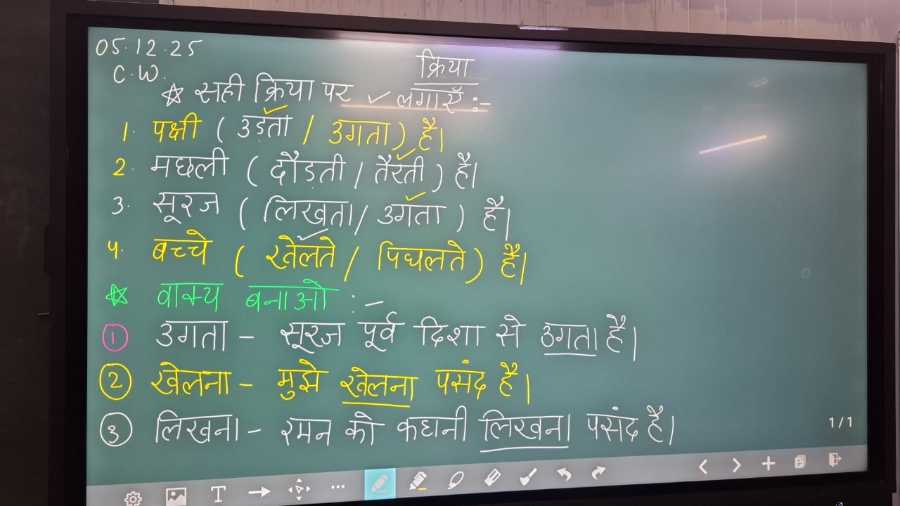 05.12.25
C.W.
क्रिया
☆ सही क्रिया पर ✓ लगाएँ :-
1. पक्षी ( उड़ता ✓ / उगता ) है।
2. मछली ( दौड़ती / तैरती ✓ ) है।
3. सूरज ( लिखता / उगता ✓ ) है।
4. बच्चे ( खेलते ✓ / पिघलते ) हैं।
☆ वाक्य बनाओ :-
① उगता - सूरज पूर्व दिशा से उगता है।
② खेलना - मुझे खेलना पसंद है।
③ लिखना - रमन को कहानी लिखना पसंद है।
1/1
T